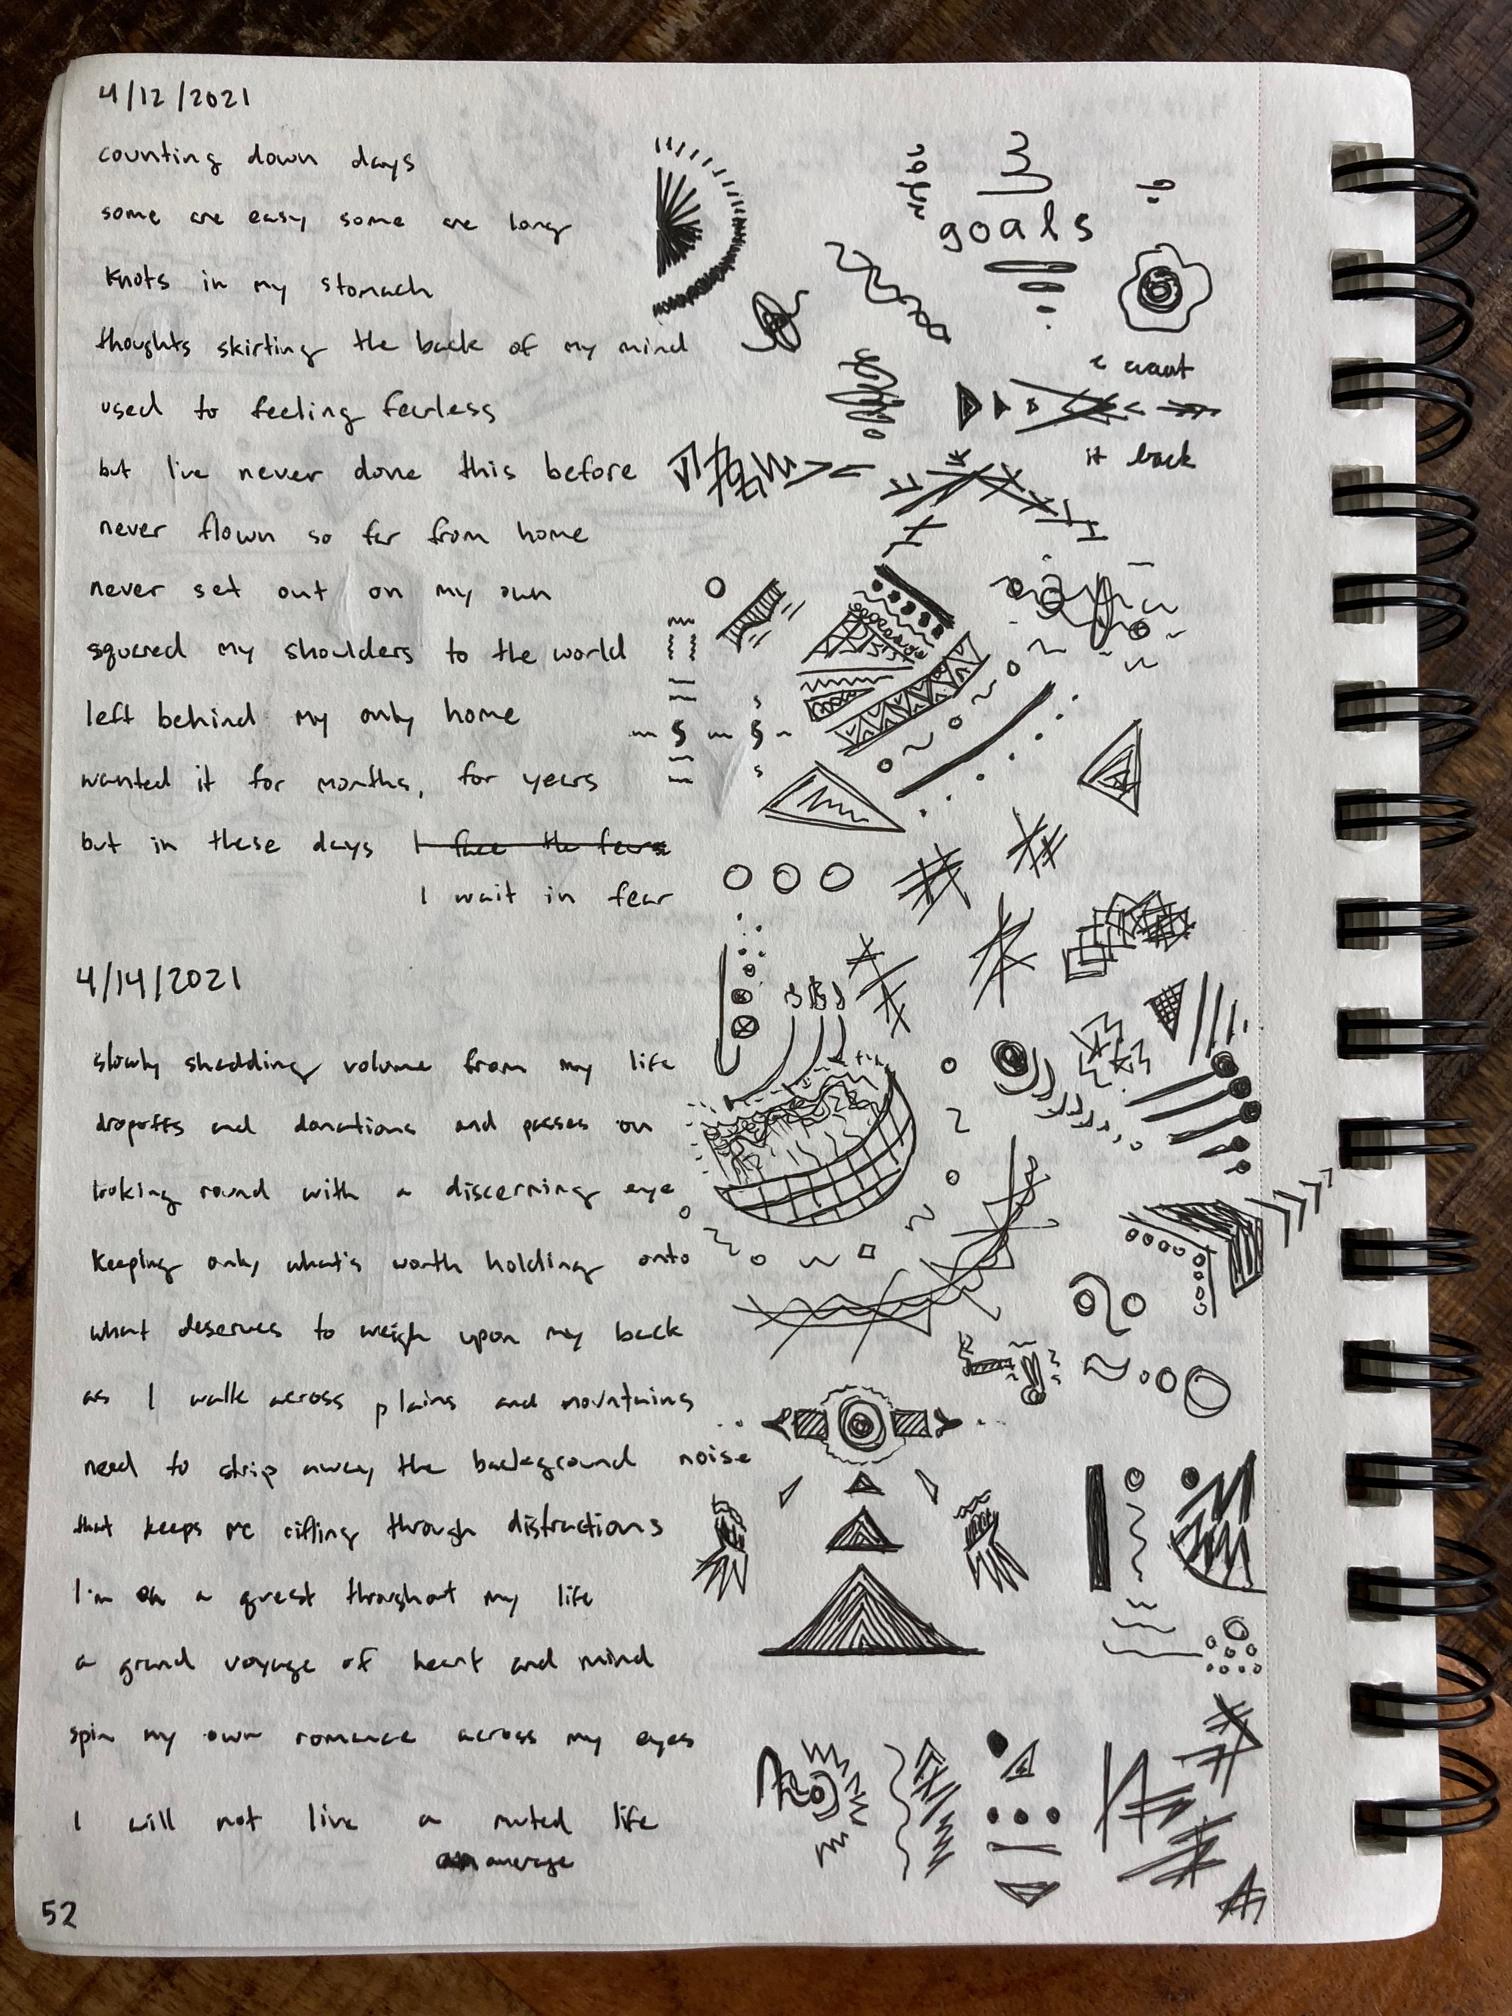 4/12/2021
counting down days
some are easy some are long
knots in my stomach
thoughts skirting the back of my mind
used to feeling fearless
but I've never done this before
never flown so far from home
never set out on my own
squared my shoulders to the world
left behind my only home
wanted it for months, for years
but in these days I face the fears
I wait in fear
goals
I want
it back
4/14/2021
slowly shedding volume from my life
dropoffs and donations and passes on
looking round with a discerning eye
keeping only what's worth holding onto
what deserves to weigh upon my back
as I walk across plains and mountains
need to strip away the background noise
that keeps me sifting through distractions
I'm on a quest throughout my life
a grand voyage of heart and mind
spin my own romance across my eyes
I will not live a muted life
an average
52